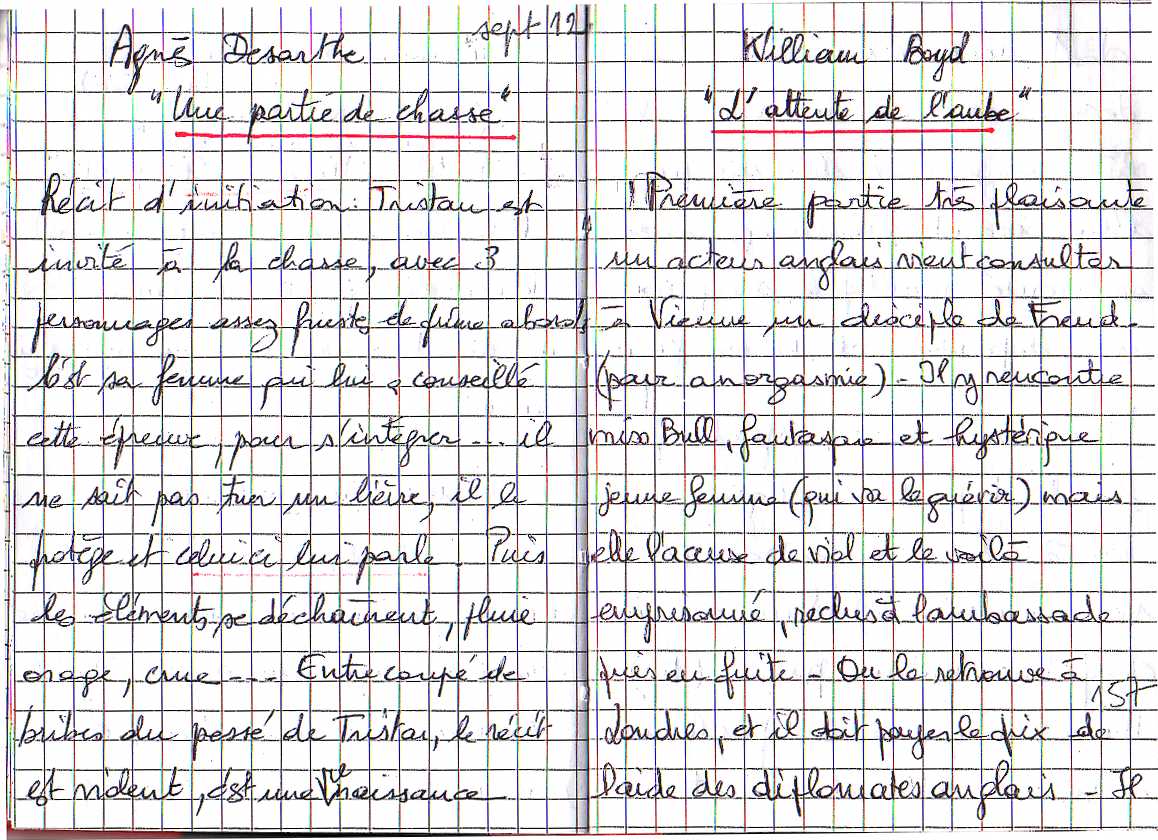 sept 12
Agnès Desarthe
"Une partie de chasse"
Récit d'initiation : Tristan est
invité à la chasse, avec 3
personnages assez frustes de prime abord
C'est sa femme qui lui a conseillé
cette épreuve, pour s'intégrer... il
ne sait pas tuer un lièvre, il le
protège et celui ci lui parle. Puis
les éléments se déchaînent, pluie
orage, crue --- Entrecoupé de
bribes du passé de Tristan, le récit
est violent, c'est une renaissance
William Boyd
"L'attente de l'aube"
Première partie très plaisante
un acteur anglais vient consulter
à Vienne un disciple de Freud -
(pour anorgasmie) - Il y rencontre
miss Bull, fantasque et hystérique
jeune femme (qui va le guérir) mais
elle l'accuse de viol et le voilà
emprisonné, reclus à l'ambassade
puis en fuite - On le retrouve à
157
Londres, et il doit payer le prix de
l'aide des diplomates anglais - Il